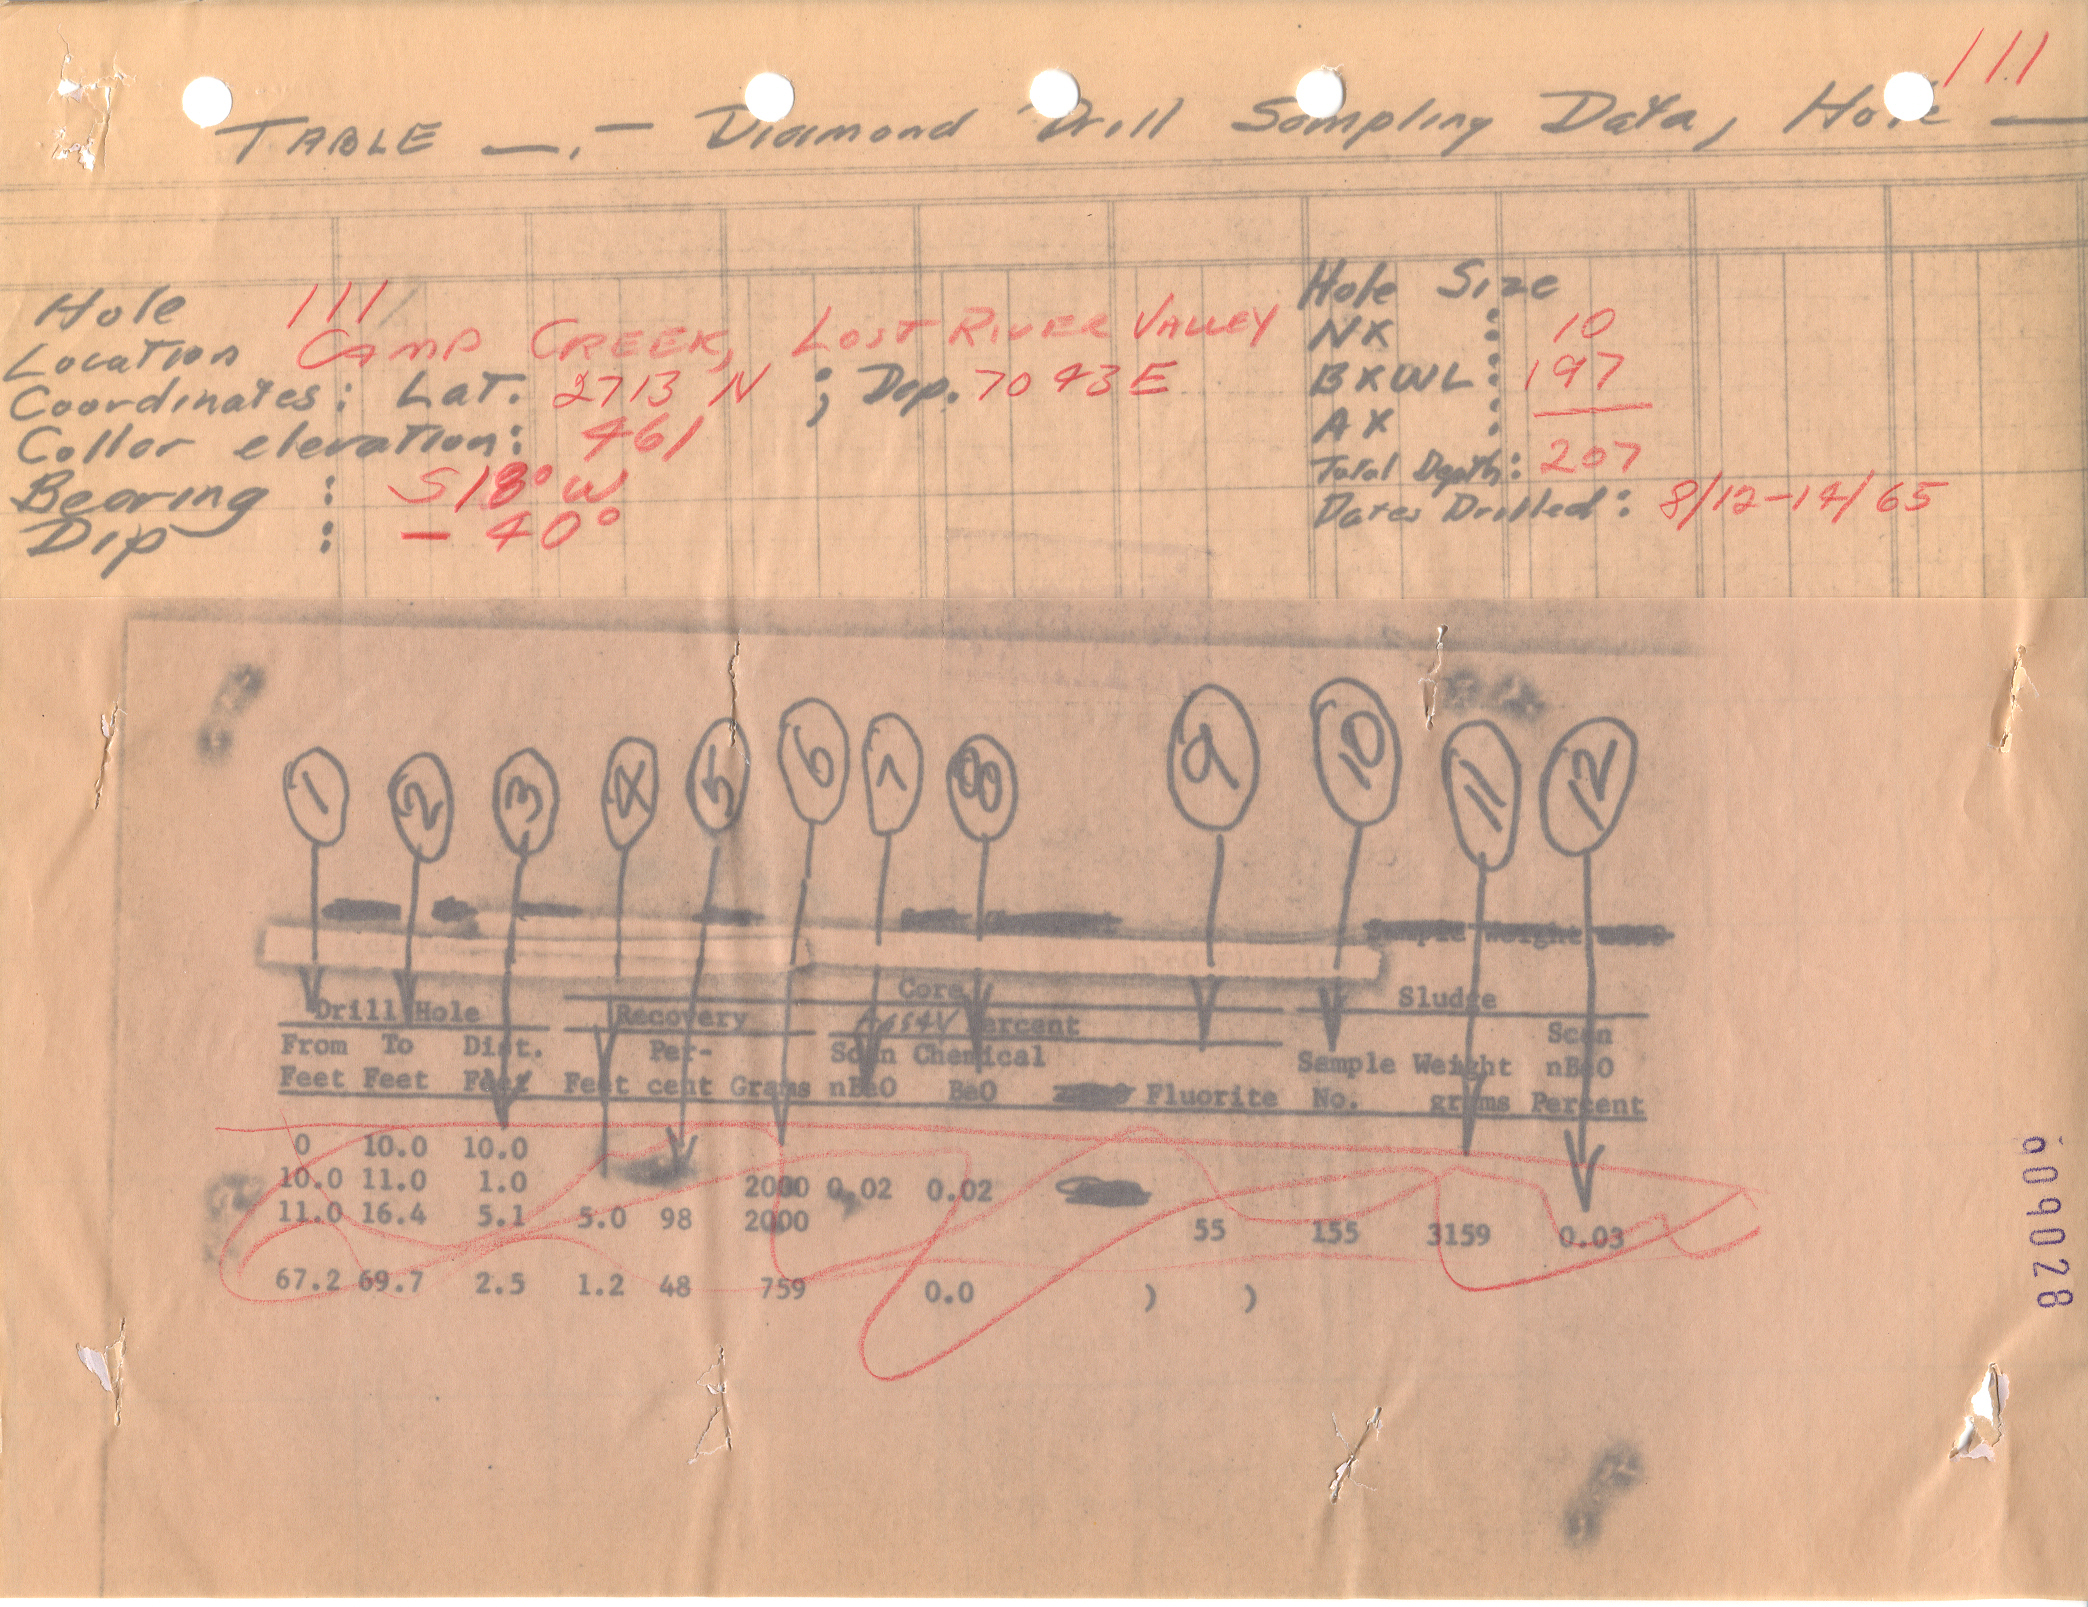 111
TABLE —. — Diamond Drill Sampling Data, Hole —
Hole 111
Location CAMP CREEK, LOST RIVER VALLEY
Coordinates: Lat. 2713 N ; Dep. 7043 E
Collar elevation: 461
Bearing : S 18° W
Dip : — 40°
Hole Size
NX : 10
BXWL : 197
AX :
Total Depth: 207
Dates Drilled: 8/12-14/65
1 2 3 4 5 6 7 8 9 10 11 12
Sample Weight
Core
Drill Hole Recovery Assay Percent Sludge
From To Dist. Per- Scan Chemical Sample Weight Scan nBeO
Feet Feet Feet Feet cent Grams nBeO BeO Fluorite No. grams Percent
0 10.0 10.0
10.0 11.0 1.0 2000 0.02 0.02
11.0 16.4 5.1 5.0 98 2000 55 155 3159 0.03
67.2 69.7 2.5 1.2 48 759 0.0 ) )
609028